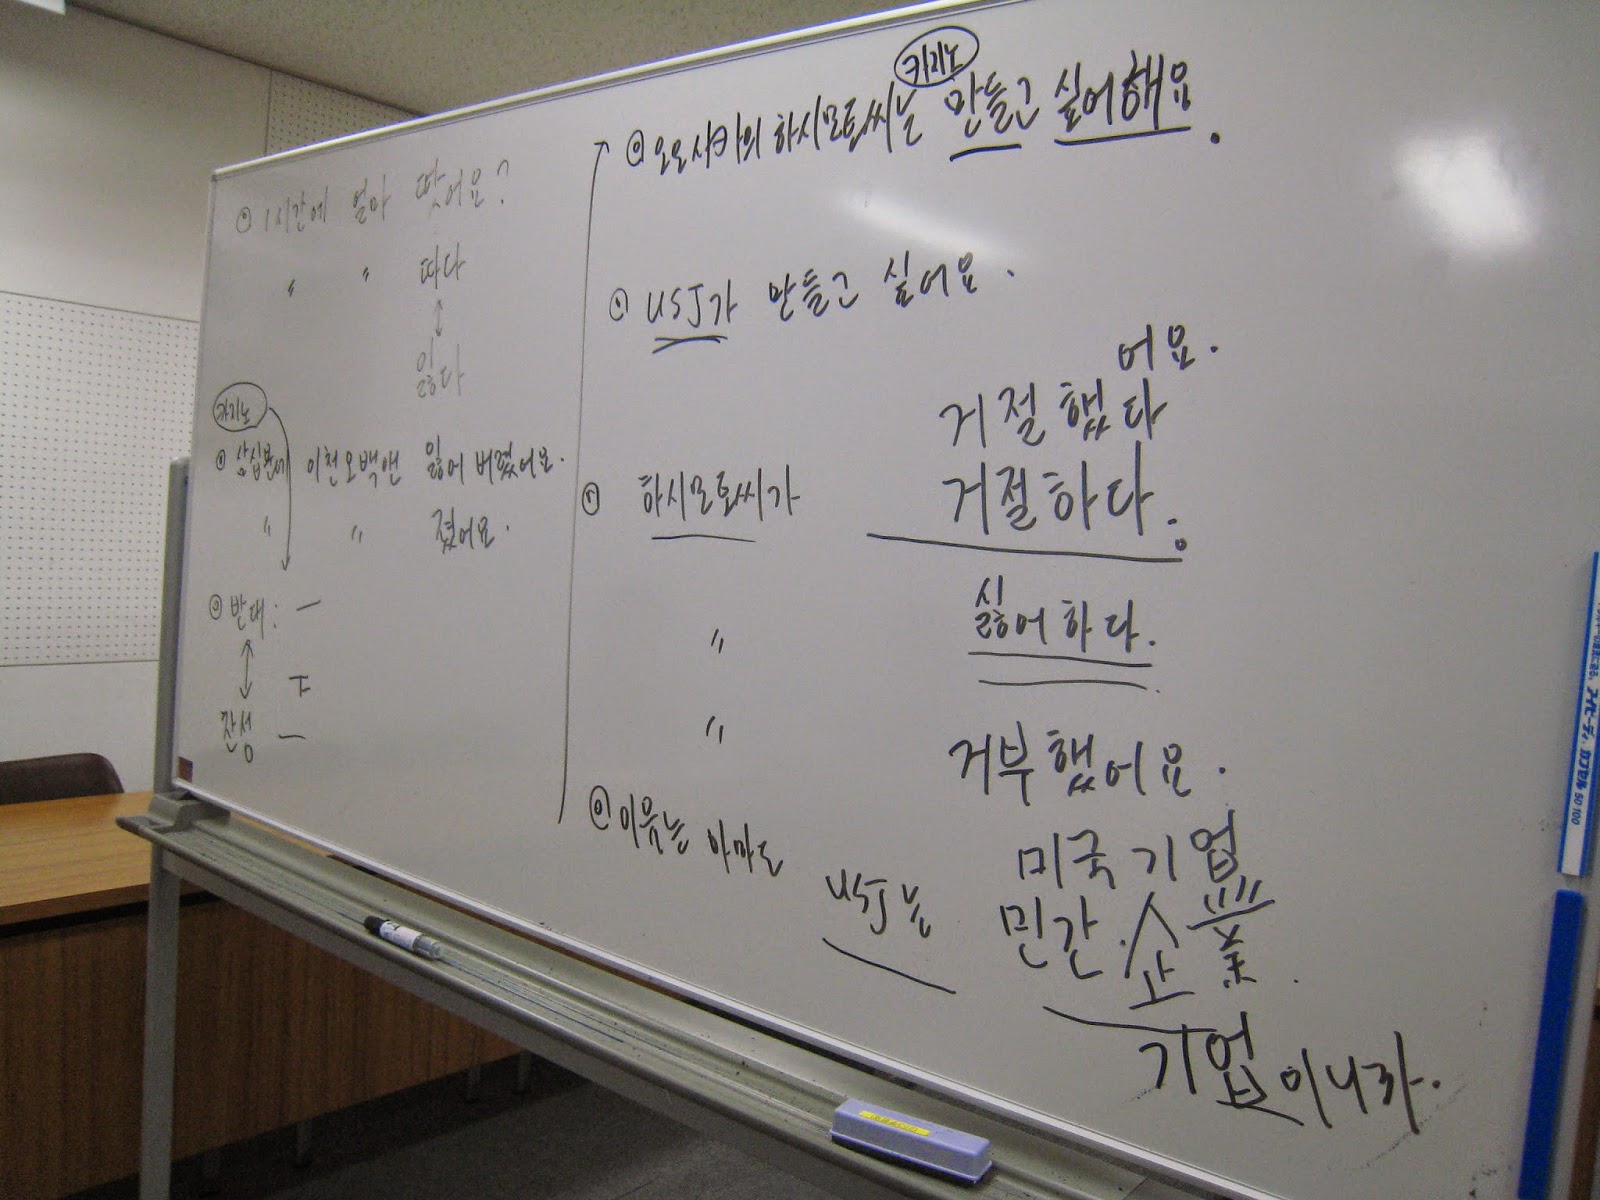 ⊙ 1시간에 얼마 땃어요?
〃 〃 따다
↕
잃다
카지노
⊙ 삼십분에 이천오백엔 잃어버렸어요.
〃 〃 졌어요.
⊙ 반대: ー
↕
찬성 ー
카지노
⊙ 오오사카의 하시모토씨는 만들고 싶어해요.
⊙ USJ가 만들고 싶어요.
어요.
거절했다
⊙ 하시모토씨가 거절하다.
〃 싫어하다.
〃 거부했어요.
⊙ 이유는 아마도 USJ는 미국기업
민간.企業.
기업이니까.